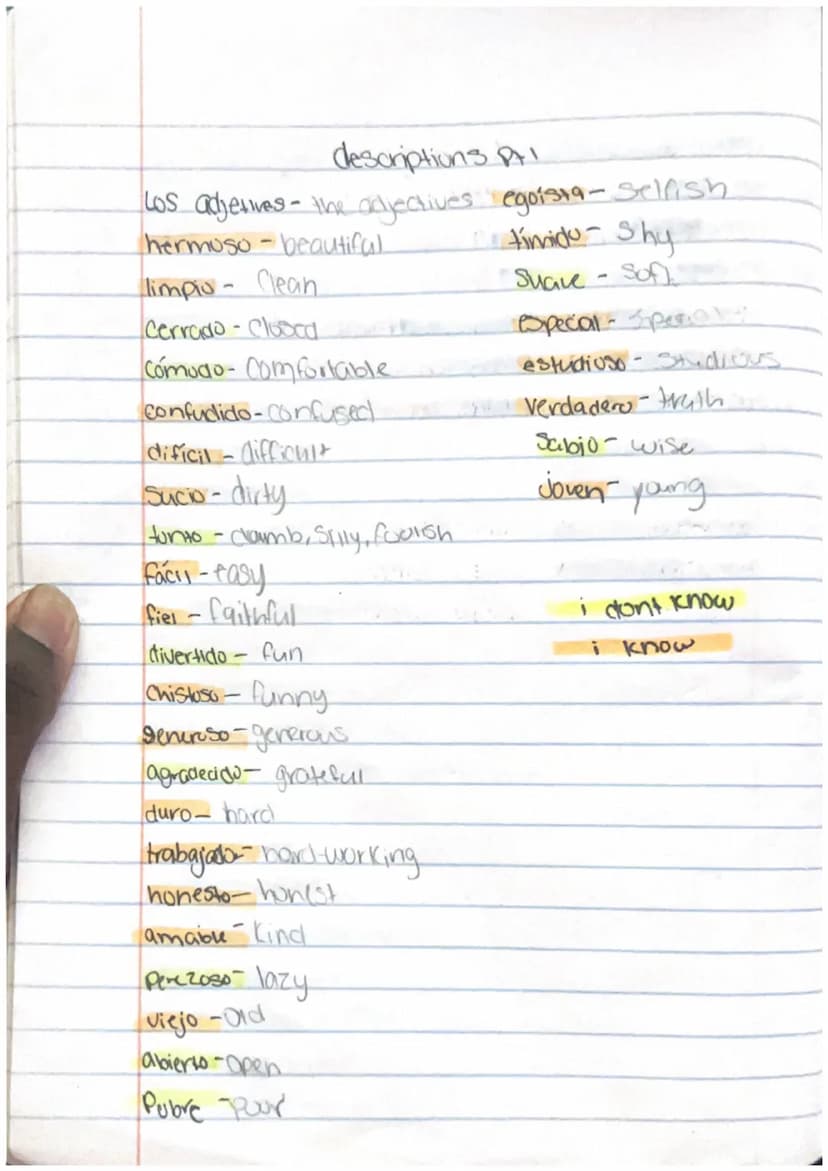 descriptions pt 1
Los adjetives - the adjectives
hermoso - beautiful
limpio - clean
Cerrado - closed
cómodo - comfortable
confudido - confused
difícil - difficult
sucio - dirty
tonto - dumb, silly, foolish
fácil - easy
fiel - faithful
divertido - fun
chistoso - funny
generoso - generous
agradecido - grateful
duro - hard
trabajador - hard-working
honesto - honest
amable - kind
perezoso - lazy
viejo - old
abierto - open
Pobre - poor
egoísta - selfish
tímido - shy
Suave - soft
especial - special
estudioso - studious
verdadero - truth
Sabio - wise
Joven - young
i dont know
i know